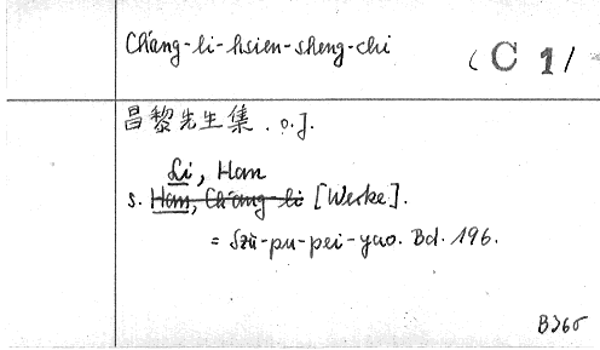 Ch'ang-li-hsien-sheng-chi
(C 1/
昌黎先生集. o.J.
Li, Han
s. Han, Ch'ang-li [Werke].
= Szŭ-pu-pei-yao. Bd. 196.
B365